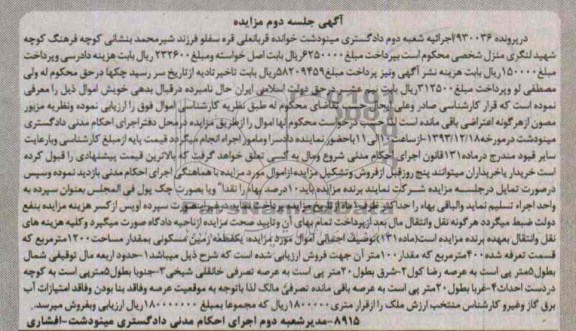 آگهی جلسه دوم مزایده
درپرونده ۹۳۰۰۳۶اجرائیه شعبه دوم دادگستری مینودشت خوانده قربانعلی قره سفلو فرزند شیرمحمد بنشانی کوچه فرهنگ کوچه
شهید لنگری منزل شخصی محکوم است بپرداخت مبلغ ۶۲۵۰۰۰۰ریال بابت اصل خواسته ومبلغ ۲۳۲۶۰۰ ریال بابت هزینه دادرسی وپرداخت
مبلغ ۱۵۰۰۰۰ریال بابت هزینه نشر آگهی ونیز پرداخت مبلغ ۵۸۲۰۹۴۵۹ریال بابت تاخیرتادیه ازتاریخ سر رسید چکها درحق محکوم له ولی
مصطفی لو وپرداخت مبلغ ۳۱۲۵۰۰ریال بابت نیم عشر درحق دولت اسلامی ایران حال نامبرده درقبال بدهی خویش اموال ذیل را معرفی
نموده است که قرار کارشناسی صادر وعلی ایحال حسب تقاضای محکوم له طبق نظریه کارشناسی اموال فوق را ارزیابی نموده ونظریه مزبور
مصون ازهرگونه اعتراضی باقی مانده است لذا جهت درخواست محکوم لها اموال را ازطریق مزایده درمحل دفتراجرای احکام مدنی دادگستری
مینودشت درمورخه ۱۳۹۳/۱۲/۱۸ازساعت ۱۰الی ۱۱باحضور نماینده دادسرا ومامور اجراء انجام میگردد قیمت پایه از مبلغ کارشناسی وبارعایت
سایر قیود مندرج درماده ۱۳۱قانون اجرای احکام مدنی شروع ومال به کسی تعلق خواهد گرفت که بالاترین قیمت پیشنهادی را قبول کرده
است خریدار یاخریداران میتوانند پنج روزقبل ازفروش وتشکیل مزایده ازاموال مورد مزایده با هماهنگی اجرای احکام مدنی بازدید نموده وسپس
درصورت تمایل درجلسه مزایده شرکت نمایند برنده مزایده باید ۱۰درصد بهاء را نقدا" ویا بصورت چک پول فی المجلس بعنوان سپرده به
واحد اجراء تسلیم نماید والباقی بهاء را حداکثر ظرف ۱ماه ازتاریخ مزایده پرداخت نماید درغیراینصورت سپرده اوپس ازکسر هزینه مزایده بنفع
دولت ضبط میگردد هرگونه نقل وانتقال مال بعد ازپرداخت تمام بهای آن وتایید صحت مزایده ازناحیه دادگاه صورت میگیرد وکلیه هزینه های
نقل وانتقال بعهده برنده مزایده است(ماده ۱۳۱)توصیف اجمالی اموال مورد مزایده: یکقطعه زمین مسکونی بمقدار مساحت ۱۲۰۰مترمربع که
قسمت تعرفه شده ۴۰۰مترمربع که مقدار ۱۰۰متر آن جهت فروش ارزیابی شده است که شرح ذیل میباشد۱-حدود اربعه مال توقیفی شمال
بطول ۵متر پی است به عرصه رضا کول۲-شرق بطول ۲۰متر پی است به عرصه تصرفی خانقلی شیخی ۳-جنوبا بطول ۵مترپی است به کوچه
دردست احداث۴-غربا بطول ۲۰متر پی است به عرصه باقی مانده تصرفی مالک لذا باتوجه به موقعیت عرصه وفاقد بنا بودن وفاقد امتیازات آب
برق گاز وغیرو کارشناس منتخب ارزش ملک را ازقرار متری ۱۸۰۰۰۰۰ریال که مجموعا بمبلغ ۱۸۰۰۰۰۰۰۰ریال ارزیابی وبفروش میرسد.
۸۹۱۵-مدیرشعبه دوم اجرای احکام مدنی دادگستری مینودشت-افشاری